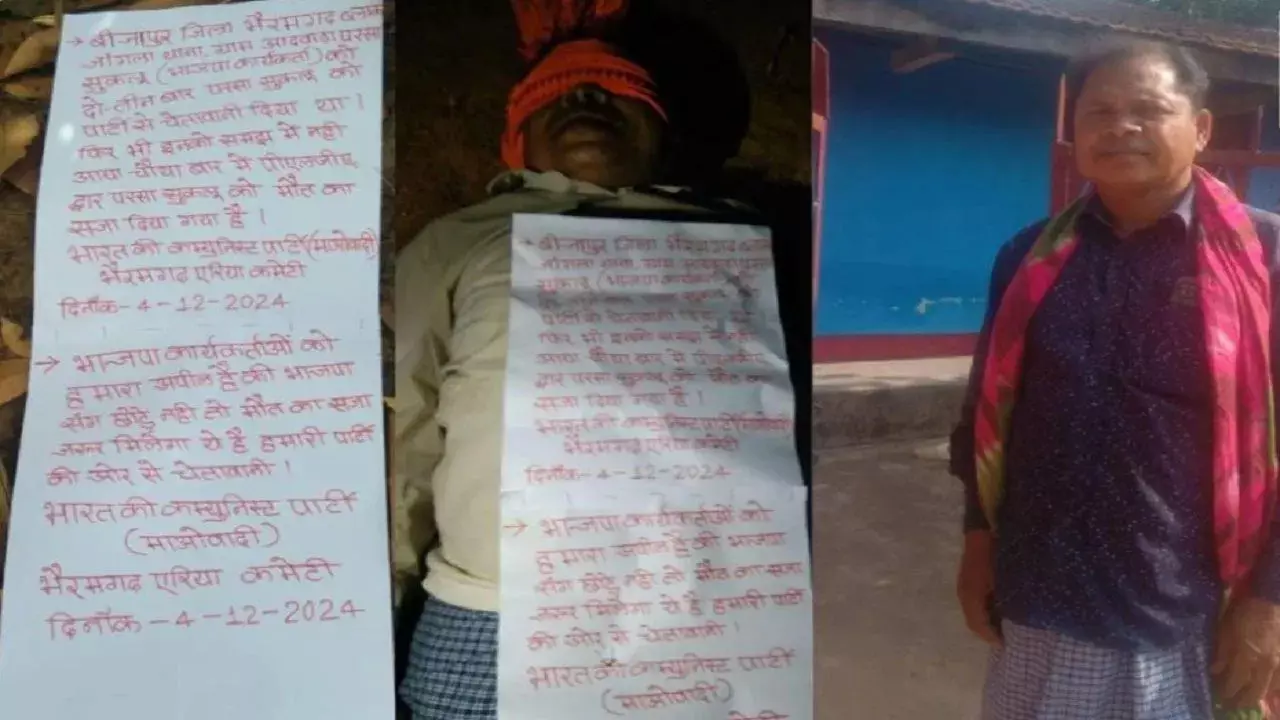 → बीजापुर जिला भैरमगढ़ ब्लाक
जांगला थाना ग्राम आदवाड़ा परसा
सुकलू (भाजपा कार्यकर्ता) को
दो-तीन बार परसा सुकलू को
पार्टी से चेतावानी दिया था।
फिर भी इनको समझ में नही
आया चौथा बार में पीएलजीए
द्वार परसा सुकलू को मौत का
सजा दिया गया है।
भारत की कम्युनिस्ट पार्टी (माओवादी)
भैरमगढ़ एरिया कमेटी
दिनाँक-4-12-2024
→ भाजपा कार्यकर्ताओं को
हमारा अपील है की भाजपा
संग छोड़े नही तो मौत का सजा
जरूर मिलेगा ये है हमारी पार्टी
की ओर से चेतावानी।
भारत की कम्युनिस्ट पार्टी
(माओवादी)
भैरमगढ़ एरिया कमेटी
दिनाँक-4-12-2024
→ बीजापुर जिला भैरमगढ़ ब्लाक
जांगला थाना ग्राम आदवाड़ा परसा
सुकलू (भाजपा कार्यकर्ता) को
दो-तीन बार परसा सुकलू को
पार्टी से चेतावानी दिया था
फिर भी इनको समझ में नही
आया चौथा बार में पीएलजीए
द्वार परसा सुकलू को मौत का
सजा दिया गया है।
भारत की कम्युनिस्ट पार्टी (माओवादी)
भैरमगढ़ एरिया कमेटी
दिनाँक-4-12-2024
→ भाजपा कार्यकर्ताओं को
हमारा अपील है की भाजपा
संग छोड़े नही तो मौत का सजा
जरूर मिलेगा ये है हमारी पार्टी
की ओर से चेतावानी।
भारत की कम्युनिस्ट पार्टी
(माओवादी)